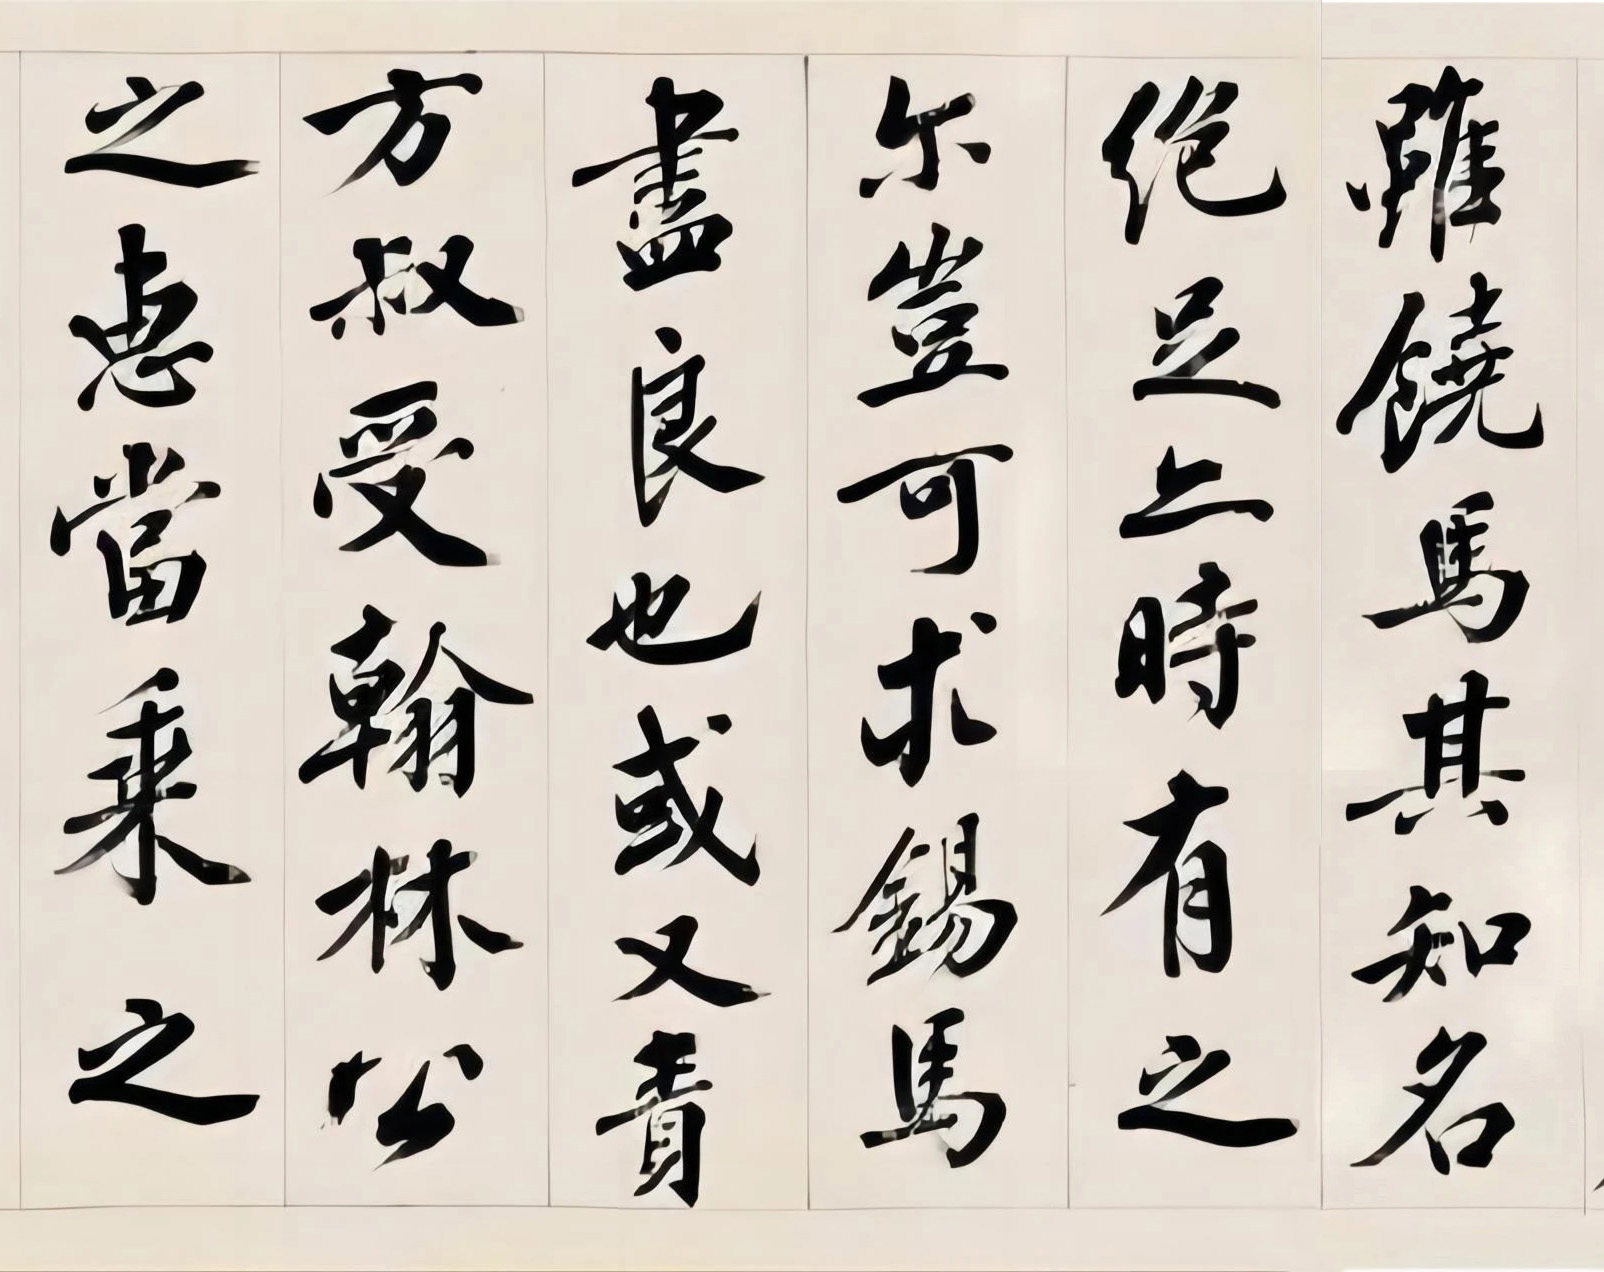 雖饒馬其知名
絕足亦時有之
尔豈可求錫馬
盡良也或又責
方叔受翰林公
之惠當乘之